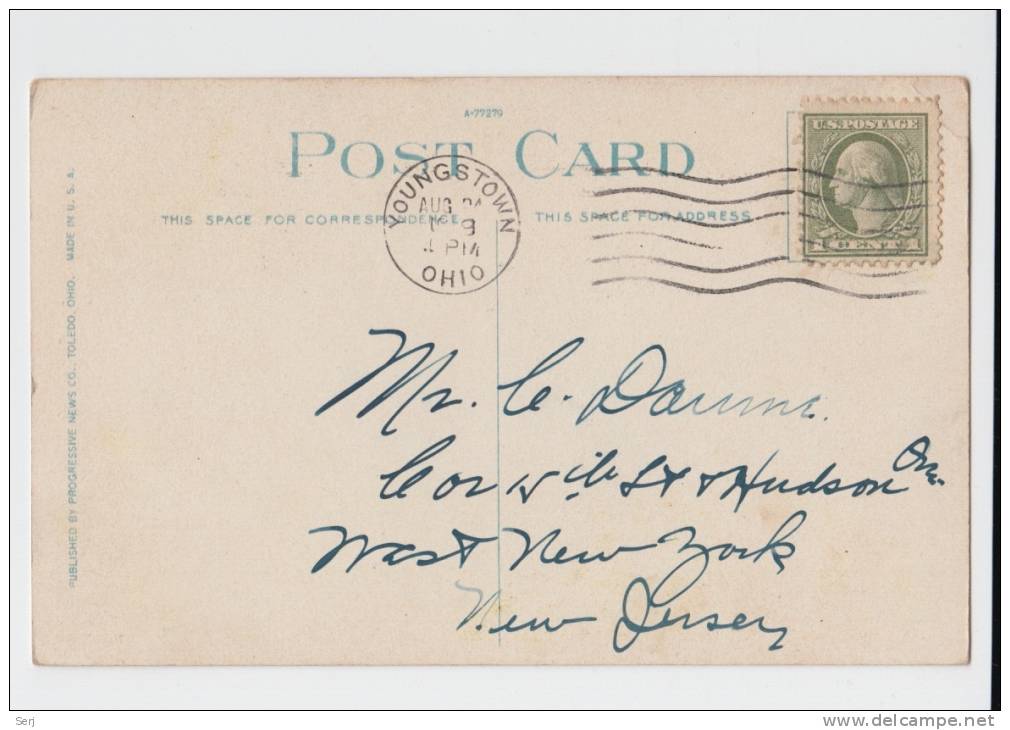 A-77279
POST CARD
U.S. POSTAGE
CENT
YOUNGSTOWN
AUG 24
4 PM
OHIO
THIS SPACE FOR CORRESPONDENCE
THIS SPACE FOR ADDRESS
PUBLISHED BY PROGRESSIVE NEWS CO., TOLEDO, OHIO. MADE IN U. S. A.
Mr. C.
Cor 15th St & Hudson Ave.
West New York
New Jersey
Serj
www.delcampe.net